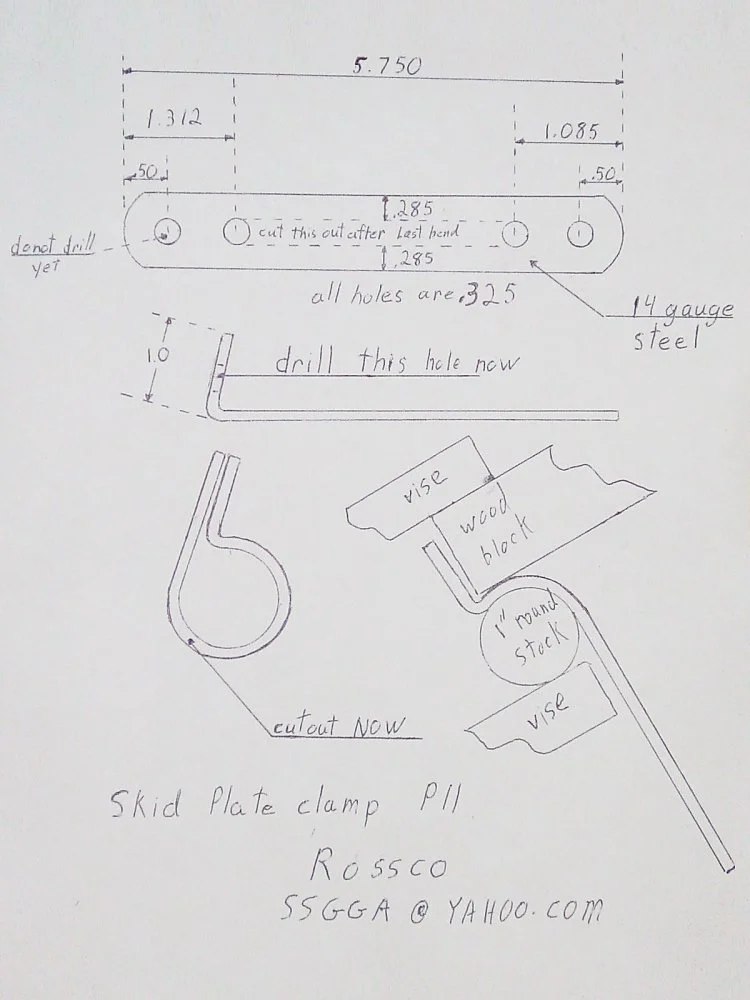 5.750
1.312
1.085
.50
.50
.285
cut this out after last bend
.285
do not drill
yet
all holes are .325
14 gauge
steel
1.0
drill this hole now
vise
wood
block
1" round
stock
vise
cutout NOW
Skid Plate clamp P11
Rossco
SSGGA @ YAHOO.COM